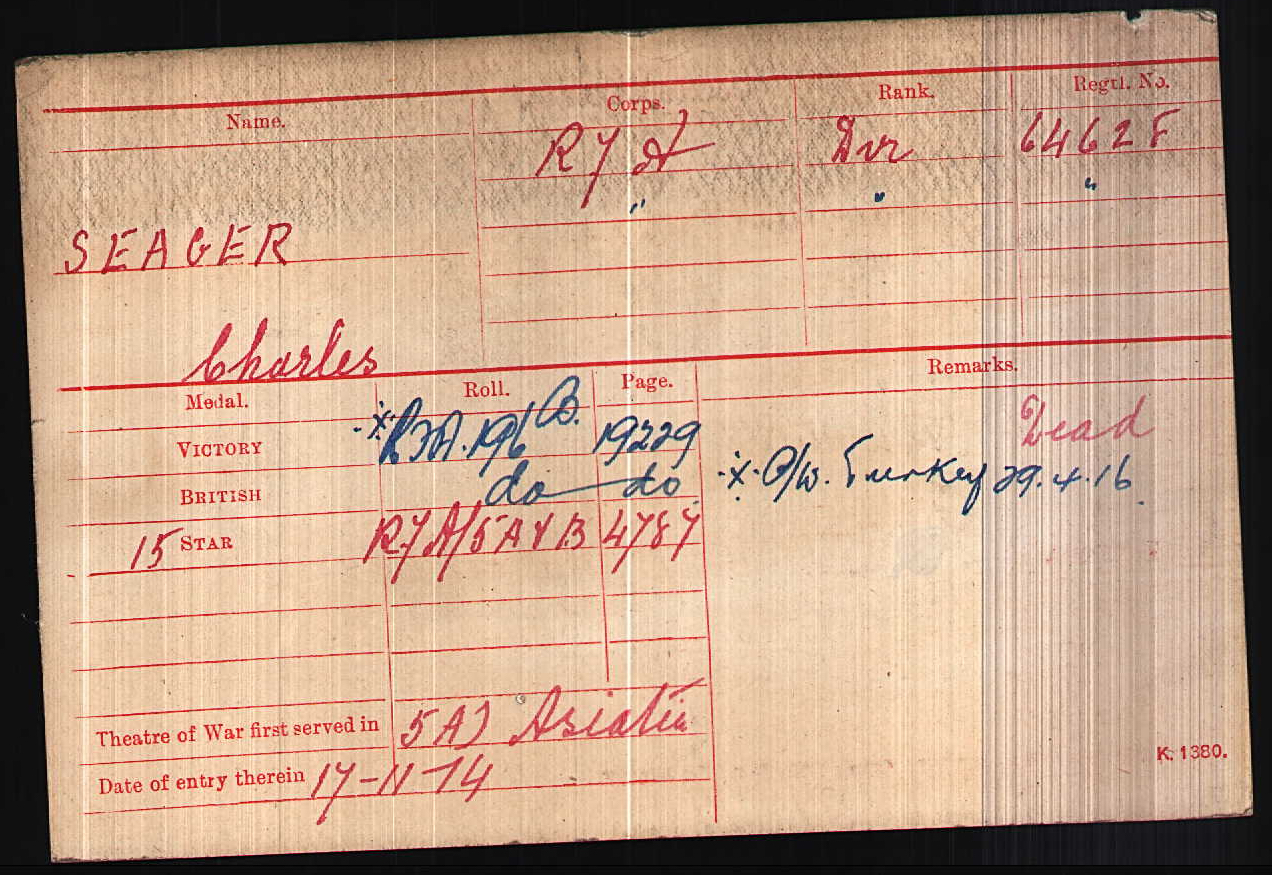 Name. Corps. Rank. Regtl. No.
RFA Dvr 64628
" " "
SEAGER
Charles
Medal. Roll. Page. Remarks.
VICTORY ·x· RFA.196 B. 19229 Dead
BRITISH do do ·x· P/W. Turkey 29.4.16.
15 STAR RFA/5A & B 4787
Theatre of War first served in (5A) Asiatic
Date of entry therein 17-11-14
K. 1380.